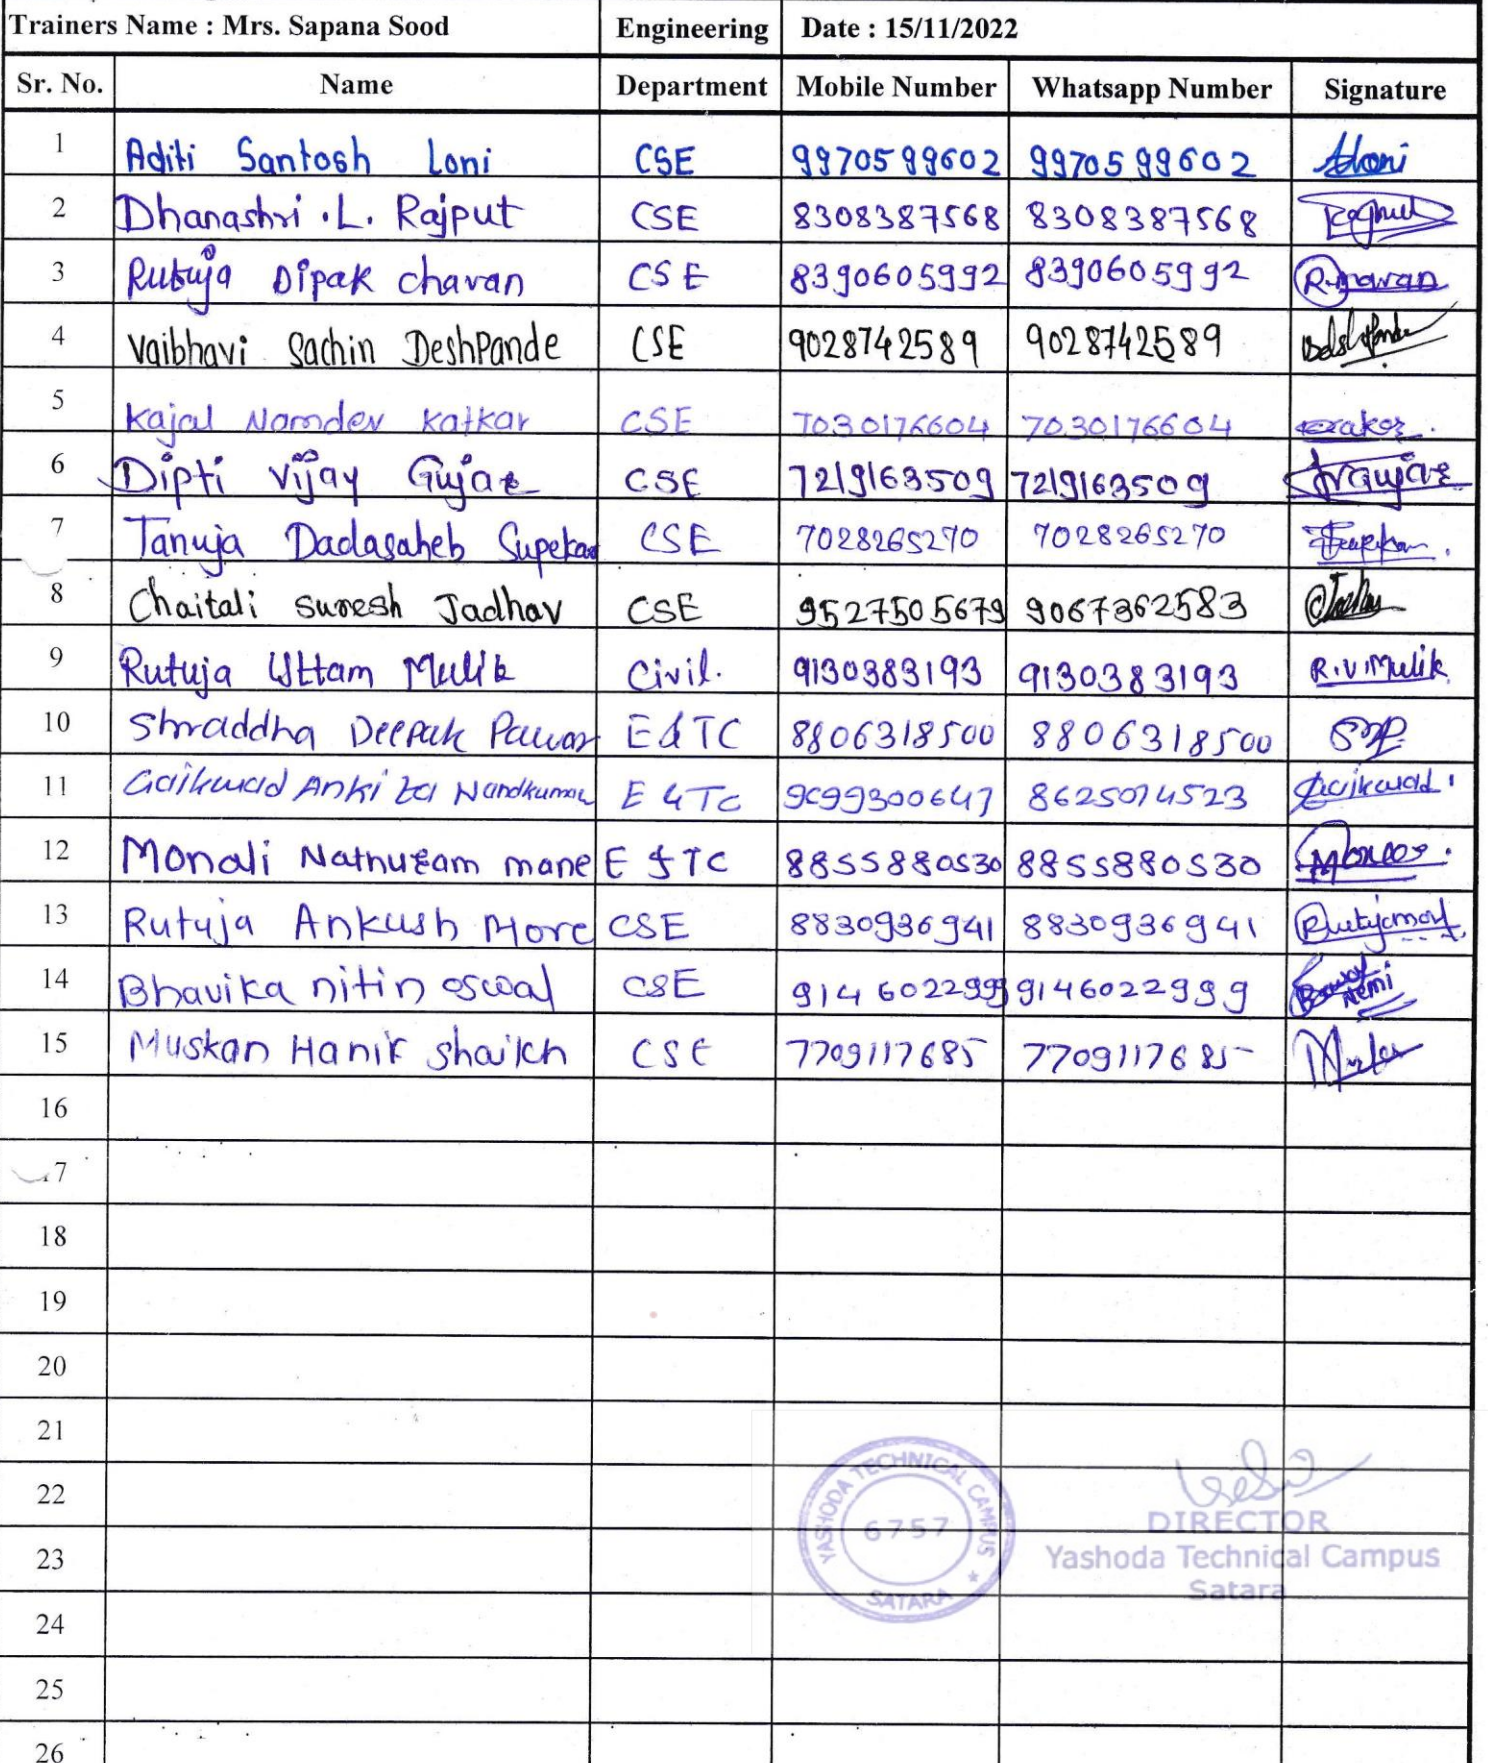 Trainers Name : Mrs. Sapana Sood Engineering Date : 15/11/2022
Sr. No. Name Department Mobile Number Whatsapp Number Signature
1 Aditi Santosh Loni CSE 9970599602 9970599602 Aloni
2 Dhanashri .L. Rajput CSE 8308387568 8308387568
3 Rutuja Dipak chavan CSE 8390605992 8390605992
4 Vaibhavi Sachin DeshPande CSE 9028742589 9028742589
5 Kajal Namdev Katkar CSE 7030176604 7030176604
6 Dipti Vijay Gujar CSE 7219163509 7219163509
7 Tanuja Dadasaheb Supekar CSE 7028265270 7028265270
8 Chaitali suresh Jadhav CSE 9527505679 9067362583
9 Rutuja Uttam Mulik Civil. 9130383193 9130383193 R.U.Mulik
10 Shraddha Deepak Pawar E&TC 8806318500 8806318500
11 Gaikwad Ankita Nandkumar E&TC 8625074523 Gaikwad
12 Monali Nathuram mane E&TC 8855880530 8855880530
13 Rutuja Ankush More CSE 8830936941 8830936941 Rutujamore
14 Bhavika nitin oswal CSE 9146022999 9146022999
15 Muskan Hanif shaikh CSE 7709117685 7709117685
16
18
19
20
21
22
23
24
25
26
YASHODA TECHNICAL CAMPUS
6757
SATARA
DIRECTOR
Yashoda Technical Campus
Satara